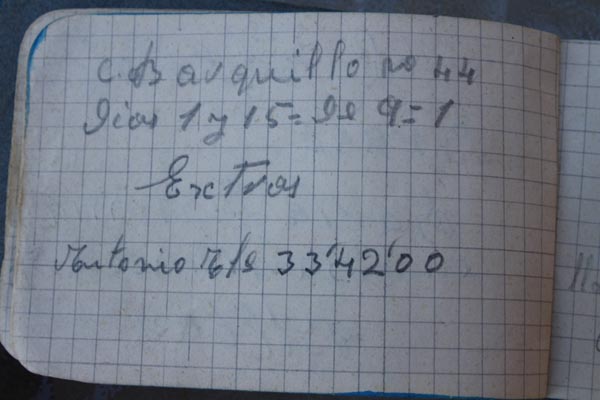 C. Barquillo no 44
Dias 1 y 15 = de 9 = 1
Extras
Antonio Tf̲s 33'42'00